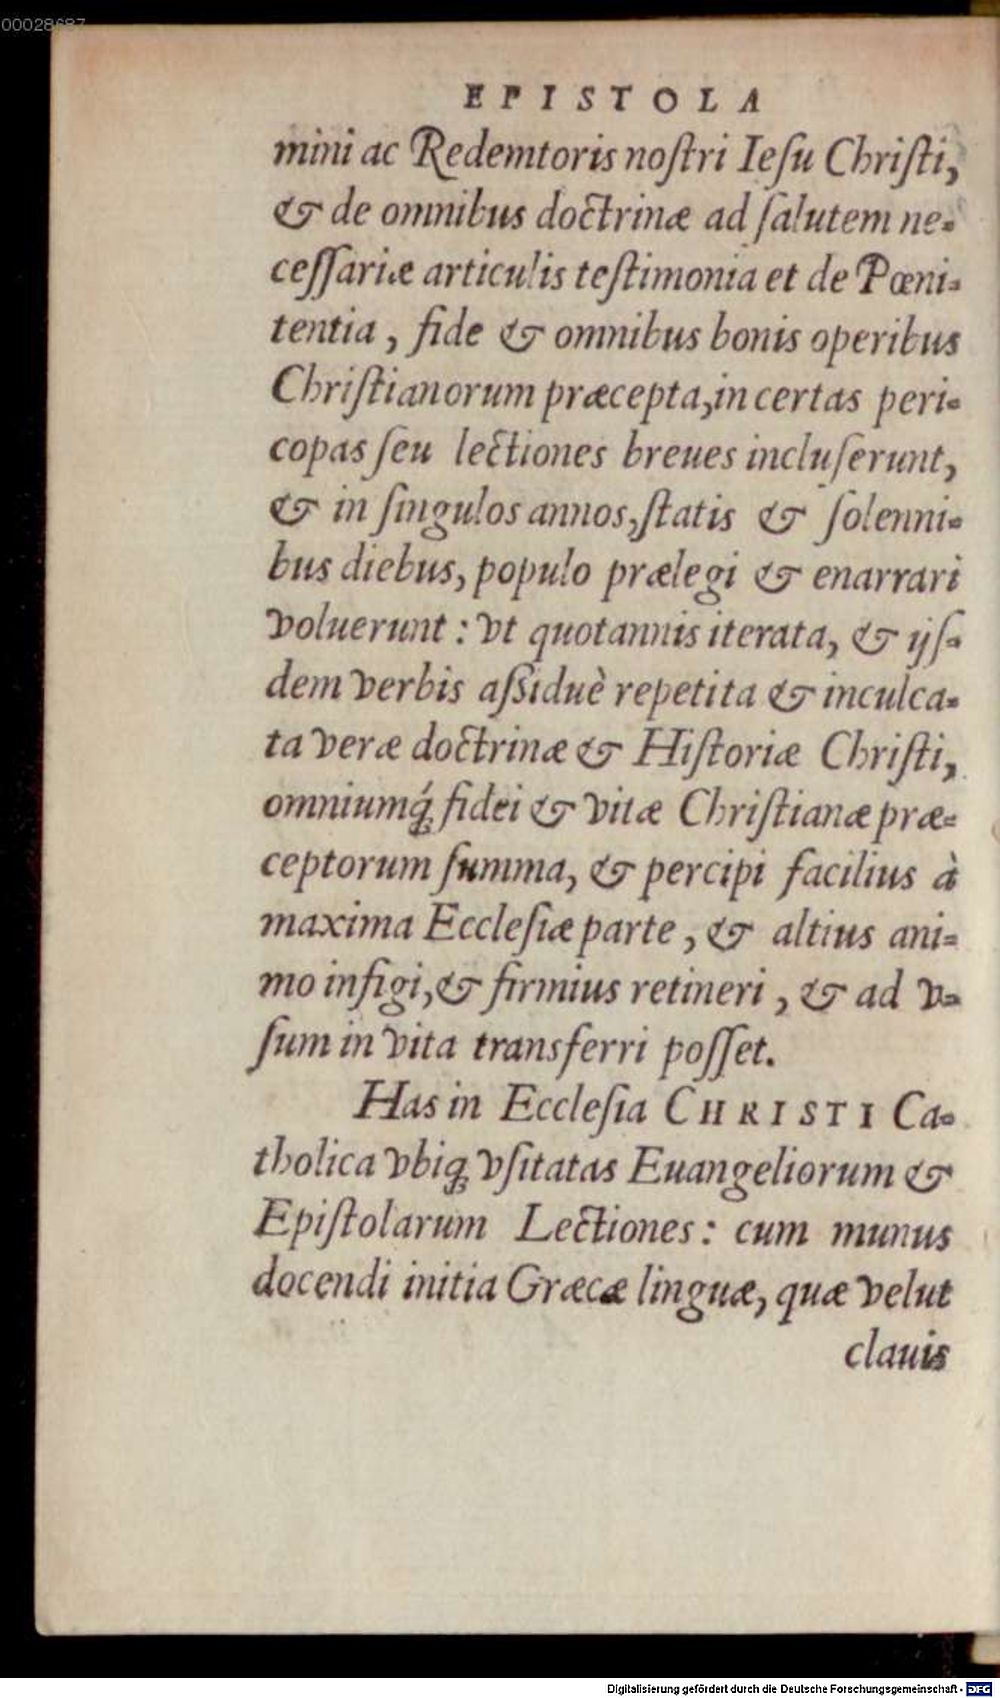 00028687
EPISTOLA
mini ac Redemtoris noſtri Ieſu Chriſti,
& de omnibus doctrinæ ad ſalutem ne-
ceſſariæ articulis teſtimonia et de Pœni-
tentia, fide & omnibus bonis operibus
Chriſtianorum præcepta, in certas peri-
copas ſeu lectiones breues incluſerunt,
& in ſingulos annos, ſtatis & ſolenni-
bus diebus, populo prælegi & enarrari
voluerunt: vt quotannis iterata, & ijſ-
dem verbis aſsiduè repetita & inculca-
ta veræ doctrinæ & Hiſtoriæ Chriſti,
omniumq́; fidei & vitæ Chriſtianæ præ-
ceptorum ſumma, & percipi facilius à
maxima Eccleſiæ parte, & altius ani-
mo infigi, & firmius retineri, & ad v-
ſum in vita transferri poſſet.
Has in Eccleſia CHRISTI Ca-
tholica vbiq; vſitatas Euangeliorum &
Epiſtolarum Lectiones: cum munus
docendi initia Græcæ linguæ, quæ velut
clauis
Digitalisierung gefördert durch die Deutsche Forschungsgemeinschaft - DFG